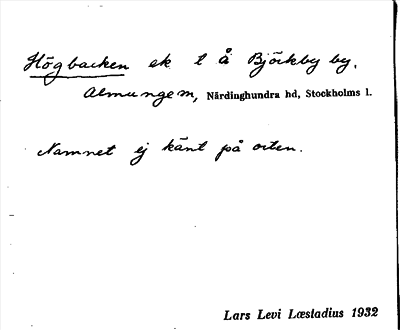 Högbacken ek l å Björkby by.
Almungem, Närdinghundra hd, Stockholms l.
Namnet ej känt på orten.
Lars Levi Læstadius 1932